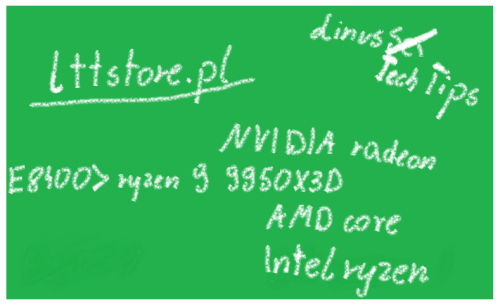 lttstore.pl
Linus Sex
Tech Tips
NVIDIA radeon
E8400> ryzen 9 9950X3D
AMD core
Intel ryzen